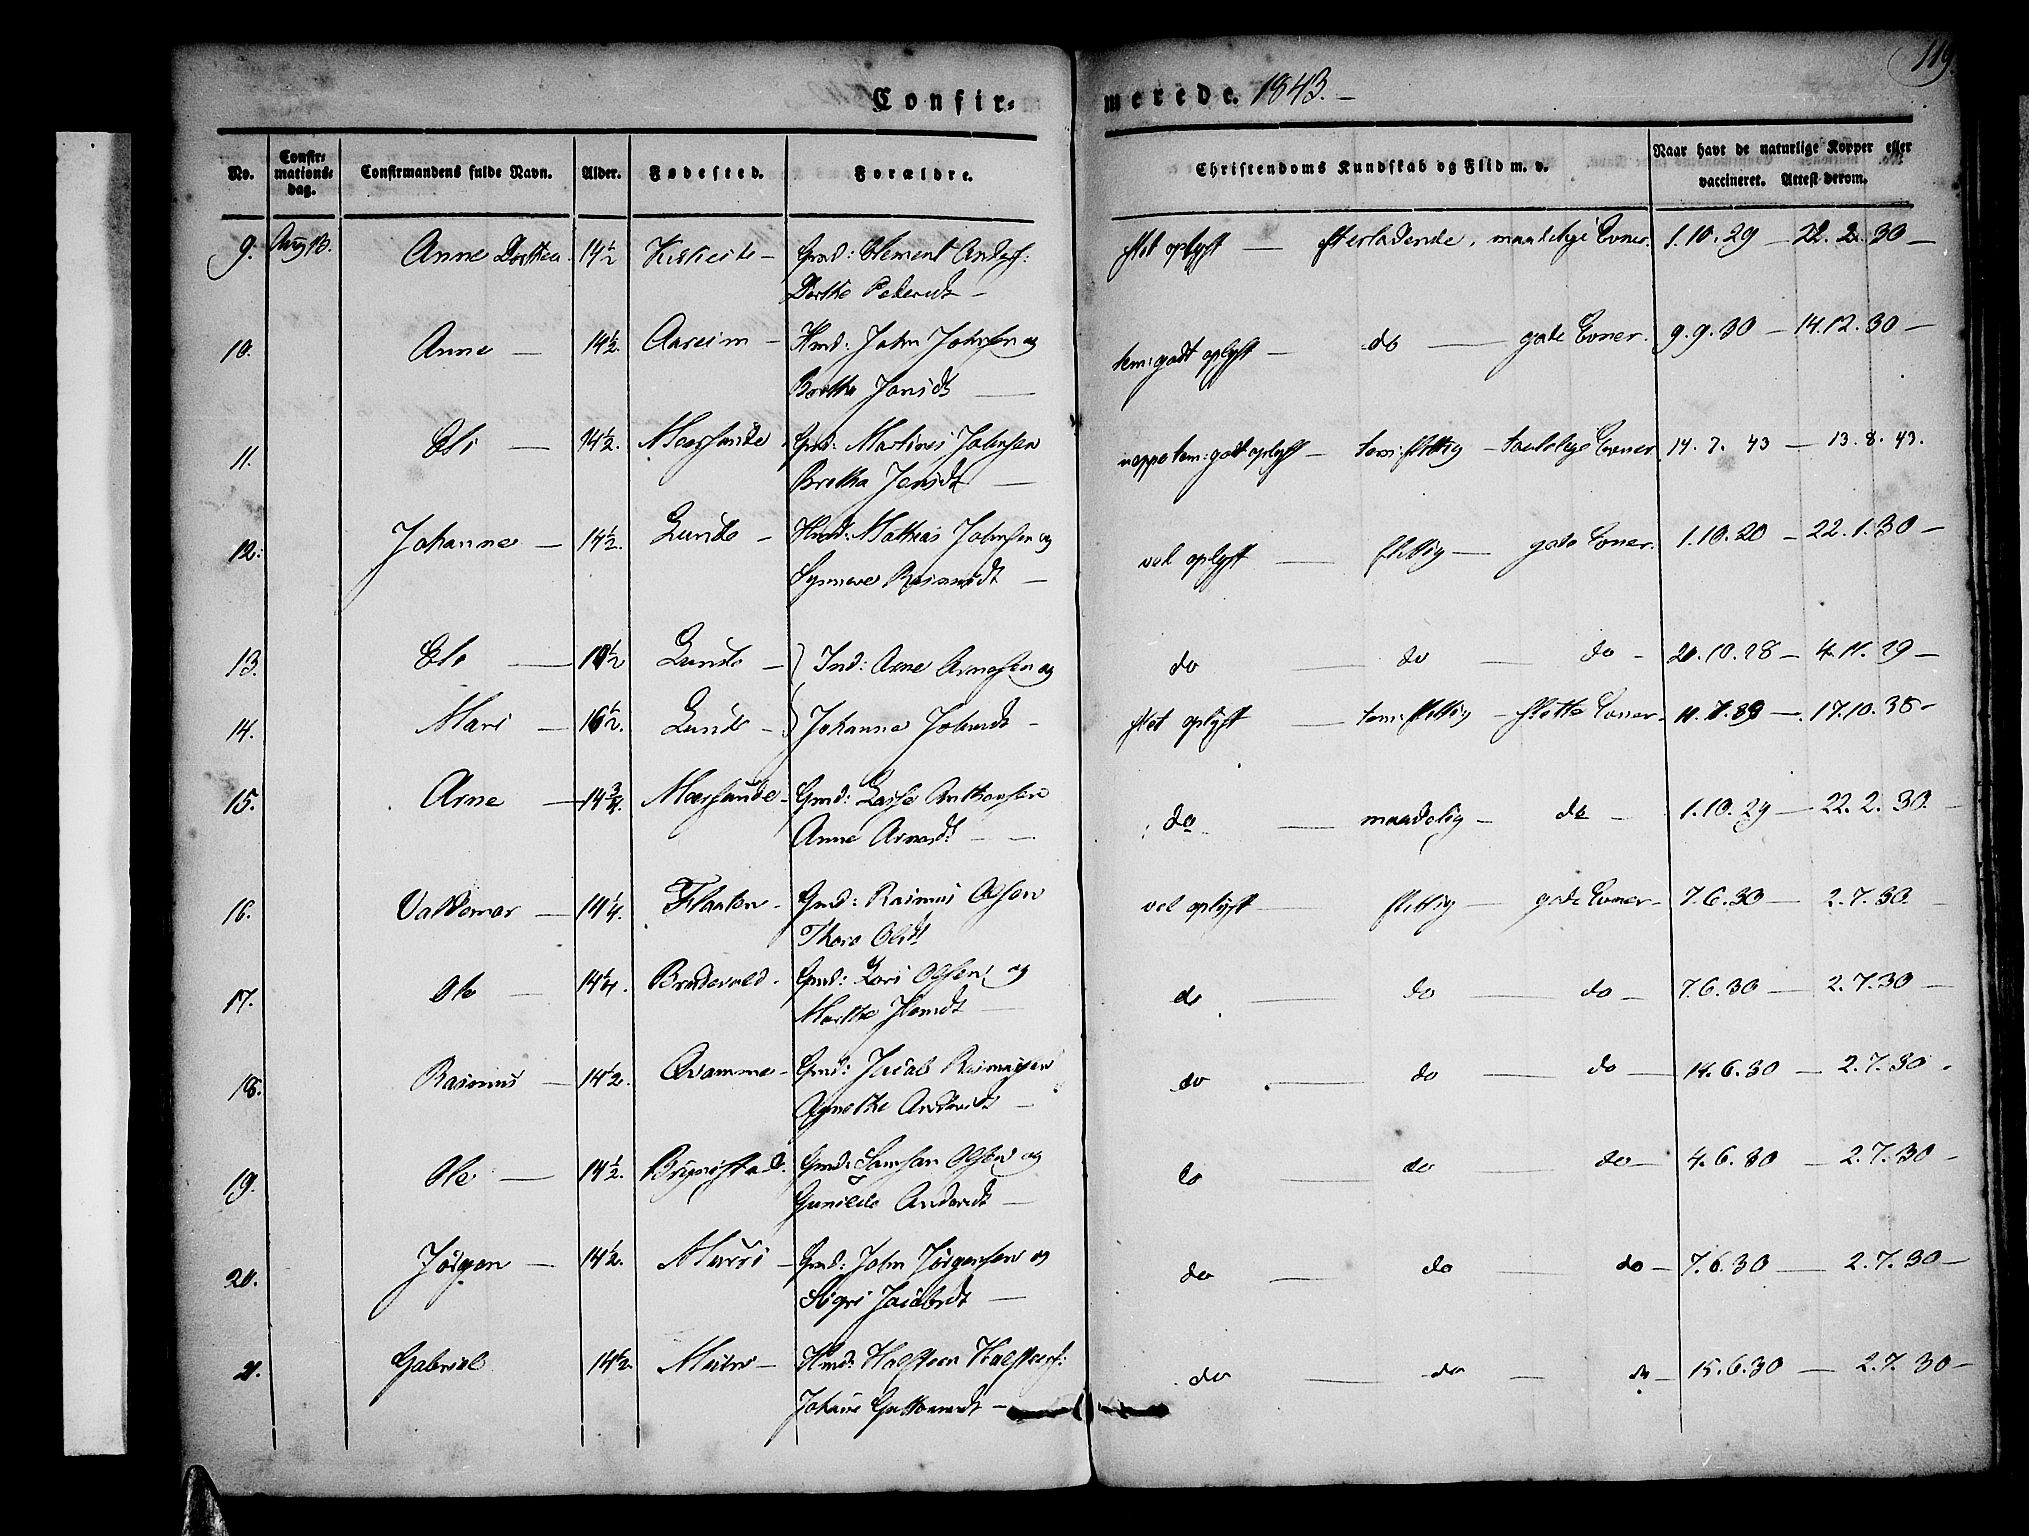 119.
Confir= merede. 1843. –
No. Confir=mations=dag. Confirmandens fulde Navn. Alder. Fødested. Forældre. Christendoms Kundskab og Flid m. v. Naar havt de naturlige Kopper eller vaccineret. Attest derom.
9. Aug 13. Anne Dorthea. 14½ – Gmd: Clement Anders:
Dorthe Pedersdt –
slet oplyst — efterladende, maadelige Evner. 1.10.29 – 22.2.30 –
10. Anne — 14½. Aareim – Hmd: John Johnsen og
Brithe Jonsdt —
tem: godt oplyst – do — gode Evner. 9.9.30 – 14.12.30 –
11. Eli — 14½. Gmd: Martines Johnsen
Brithe Jensdt —
neppe tem: godt oplyst – tem: flittig – taalelige Evner 14.7.43 – 13.8.43.
12. Johanne – 14½. Lunde – Hmd: Mathias Johnsen og
Synneve Rasmusdt —
vel oplyst — flittig — gode Evner. 1.10.20 – 22.1.30 –
13. Eli — Lunde – Ind: Arne Arnesen og
do — do — do – 20.10.28 – 4.11.29 –
14. Mari — 16½. Lunde – Johanne Johnsdt –
slet oplyst — tem: flittig – slette Evner – 17.10.38 –
15. Arne — 14¾. Gmd: Lasse
Anne Arnesdt –
do — maadelig – do – 1.10.29 – 22.2.30 –
16. Valdemar — 14¼. Flaaten – Gmd: Rasmus Olsen
Thore Olsdt
vel oplyst — flittig – gode Evner – 7.6.30 – 2.7.30 –
17. Ole — 14¼. Bredevold. Gmd: Lars Olsen og
Marthe
do — do — do – 7.6.30 – 2.7.30 –
18. Rasmus — 14½. Qvamme – Gmd: Jacob Rasmusen
Agnethe Andersdt –
do — do — do – 14.6.30 – 2.7.30.
19. Ole — 14½. Gmd: Samson Olsen og
Gunilde Andersdt —
do — do — do – 4.6.30 – 2.7.30 –
20. Jörgen – 14½. Muri – Gmd: John Jörgensen og
Sigri Jacobsdt —
do — do — do – 7.6.30 – 2.7.30 –
21. Gabriel 14½. Muri – Hmd: Halsteen Halsteens:
Johane Guttormsdt –
do — do – do – 15.6.30 – 2.7.30 –